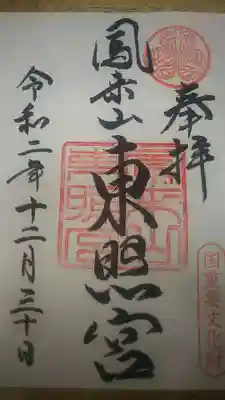 奉拝
鳳来山東照宮
令和二年十二月三十日
国重要文化財